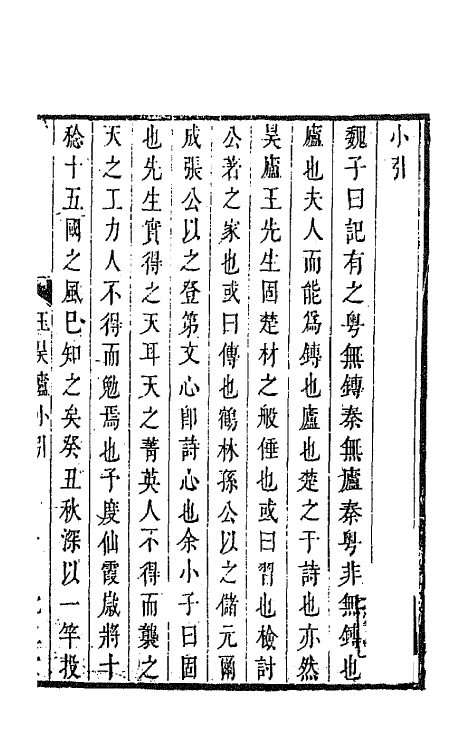 小引
魏子曰記有之粤無鏄秦無廬秦粤非無鏄也
廬也夫人而能爲鏄也廬也楚之于詩也亦然
昊廬王先生固楚材之般倕也或曰習也檢討
公著之家也或曰傳也鶴林孫公以之儲元爾
成張公以之登第文心卽詩心也余小子曰固
也先生實得之天耳天之菁英人不得而襲之
天之工力人不得而勉焉也予度仙霞嶽將十
稔十五國之風已知之矣癸丑秋深以一竿投
王昊廬小引